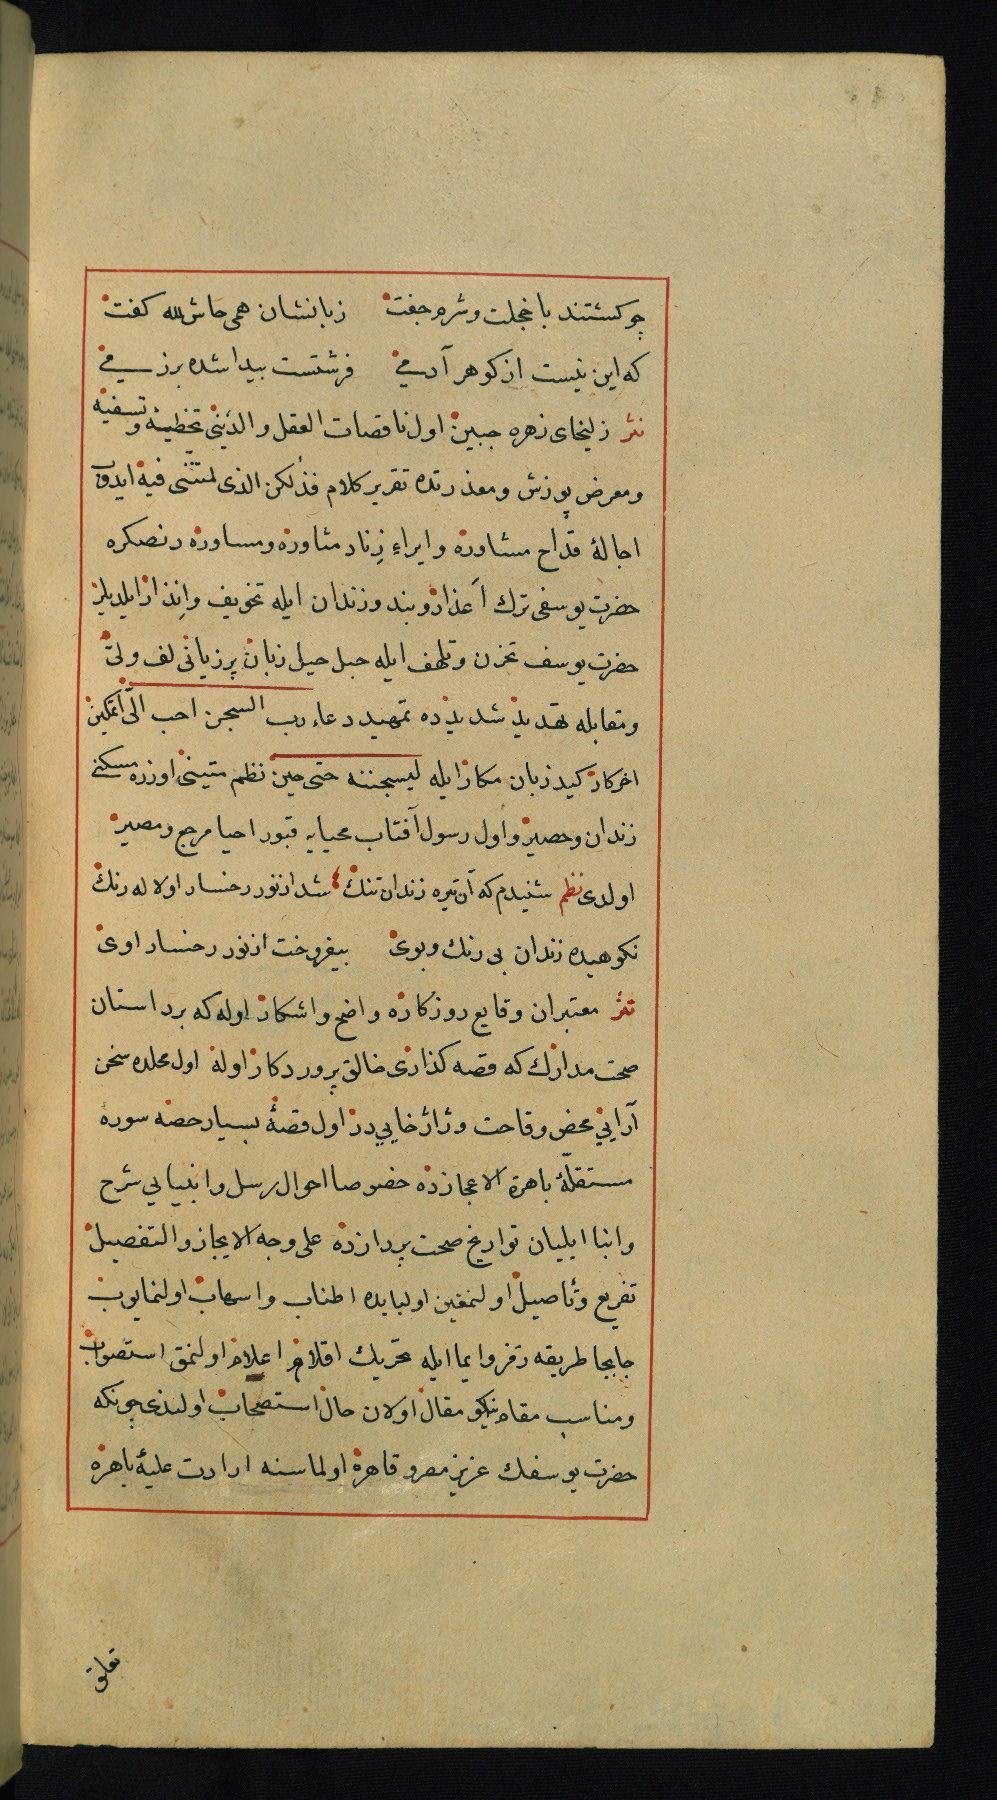 چو كشتند با خجلت و شرم جفت زبانشان همی حاش لله كفت
كه این نیست از كوهر آدمی فرشتست بیدا شده بر زمی
نثر زلیخای زهره جبین اول ناقصات العقل والدینی تخطیۀ وتسفیه
ومعرض پوزش ومعذرتده تقریر كلام فذلكن الذی لمتننی فیه ایدوب
اجالۀ قداح مشاوره وایراء زناد مثاوره ومساوره دنصكره
حضرت یوسفی ترك اعذار وبند وزندان ایله تخویف وانذار ایلدیلر
حضرت یوسف تحزن وتلهف ایله حبل حیل زبان پرزیانی لف ولی
ومقابله تهدید شدیدده تمهید دعاء رب السجن احب الی اتمكین
اخر كار كید زبان مكار ایله لیسجننه حتی حین نظم متینی اوزره مسكنے
زندان وحصیر واول رسول آفتاب محیایه قبور احیا مرجع ومصیر
اولدی نظم شنیدم كه آن تیره زندان تنك شد از نور رخسار او لاله رنك
نكوهیده زندان بی رنك وبوی بیفروخت از نور رخسار اوی
نثر معتبران وقایع روزكاره واضح واشكار اوله كه بر داستان
صحت مدارك كه قصه كذاری خالق پروردكار اوله اول محلده سخن
آرایی محض وقاحت وژاژخایی در اول قصۀ بسیار حصه سوره
مستقلۀ باهرة الاعجازده خصوصا احوال رسل وانبیایی شرح
وانبا ایلیان تواریخ صحت پردازده علی وجه الایجاز والتفصیل
تفریع وتأصیل اولنمغین اولبابده اطناب واسهاب اولنمایوب
جابجا طریقه رمز وایما ایله تحریك اقلام اعلام اولنمق استصواب
ومناسب مقام نیكو مقال اولان حال استصحاب اولندی چونكه
حضرت یوسفك عزیز مصر وقاهره اولماسنه ارادت علیۀ باهره
تعلق